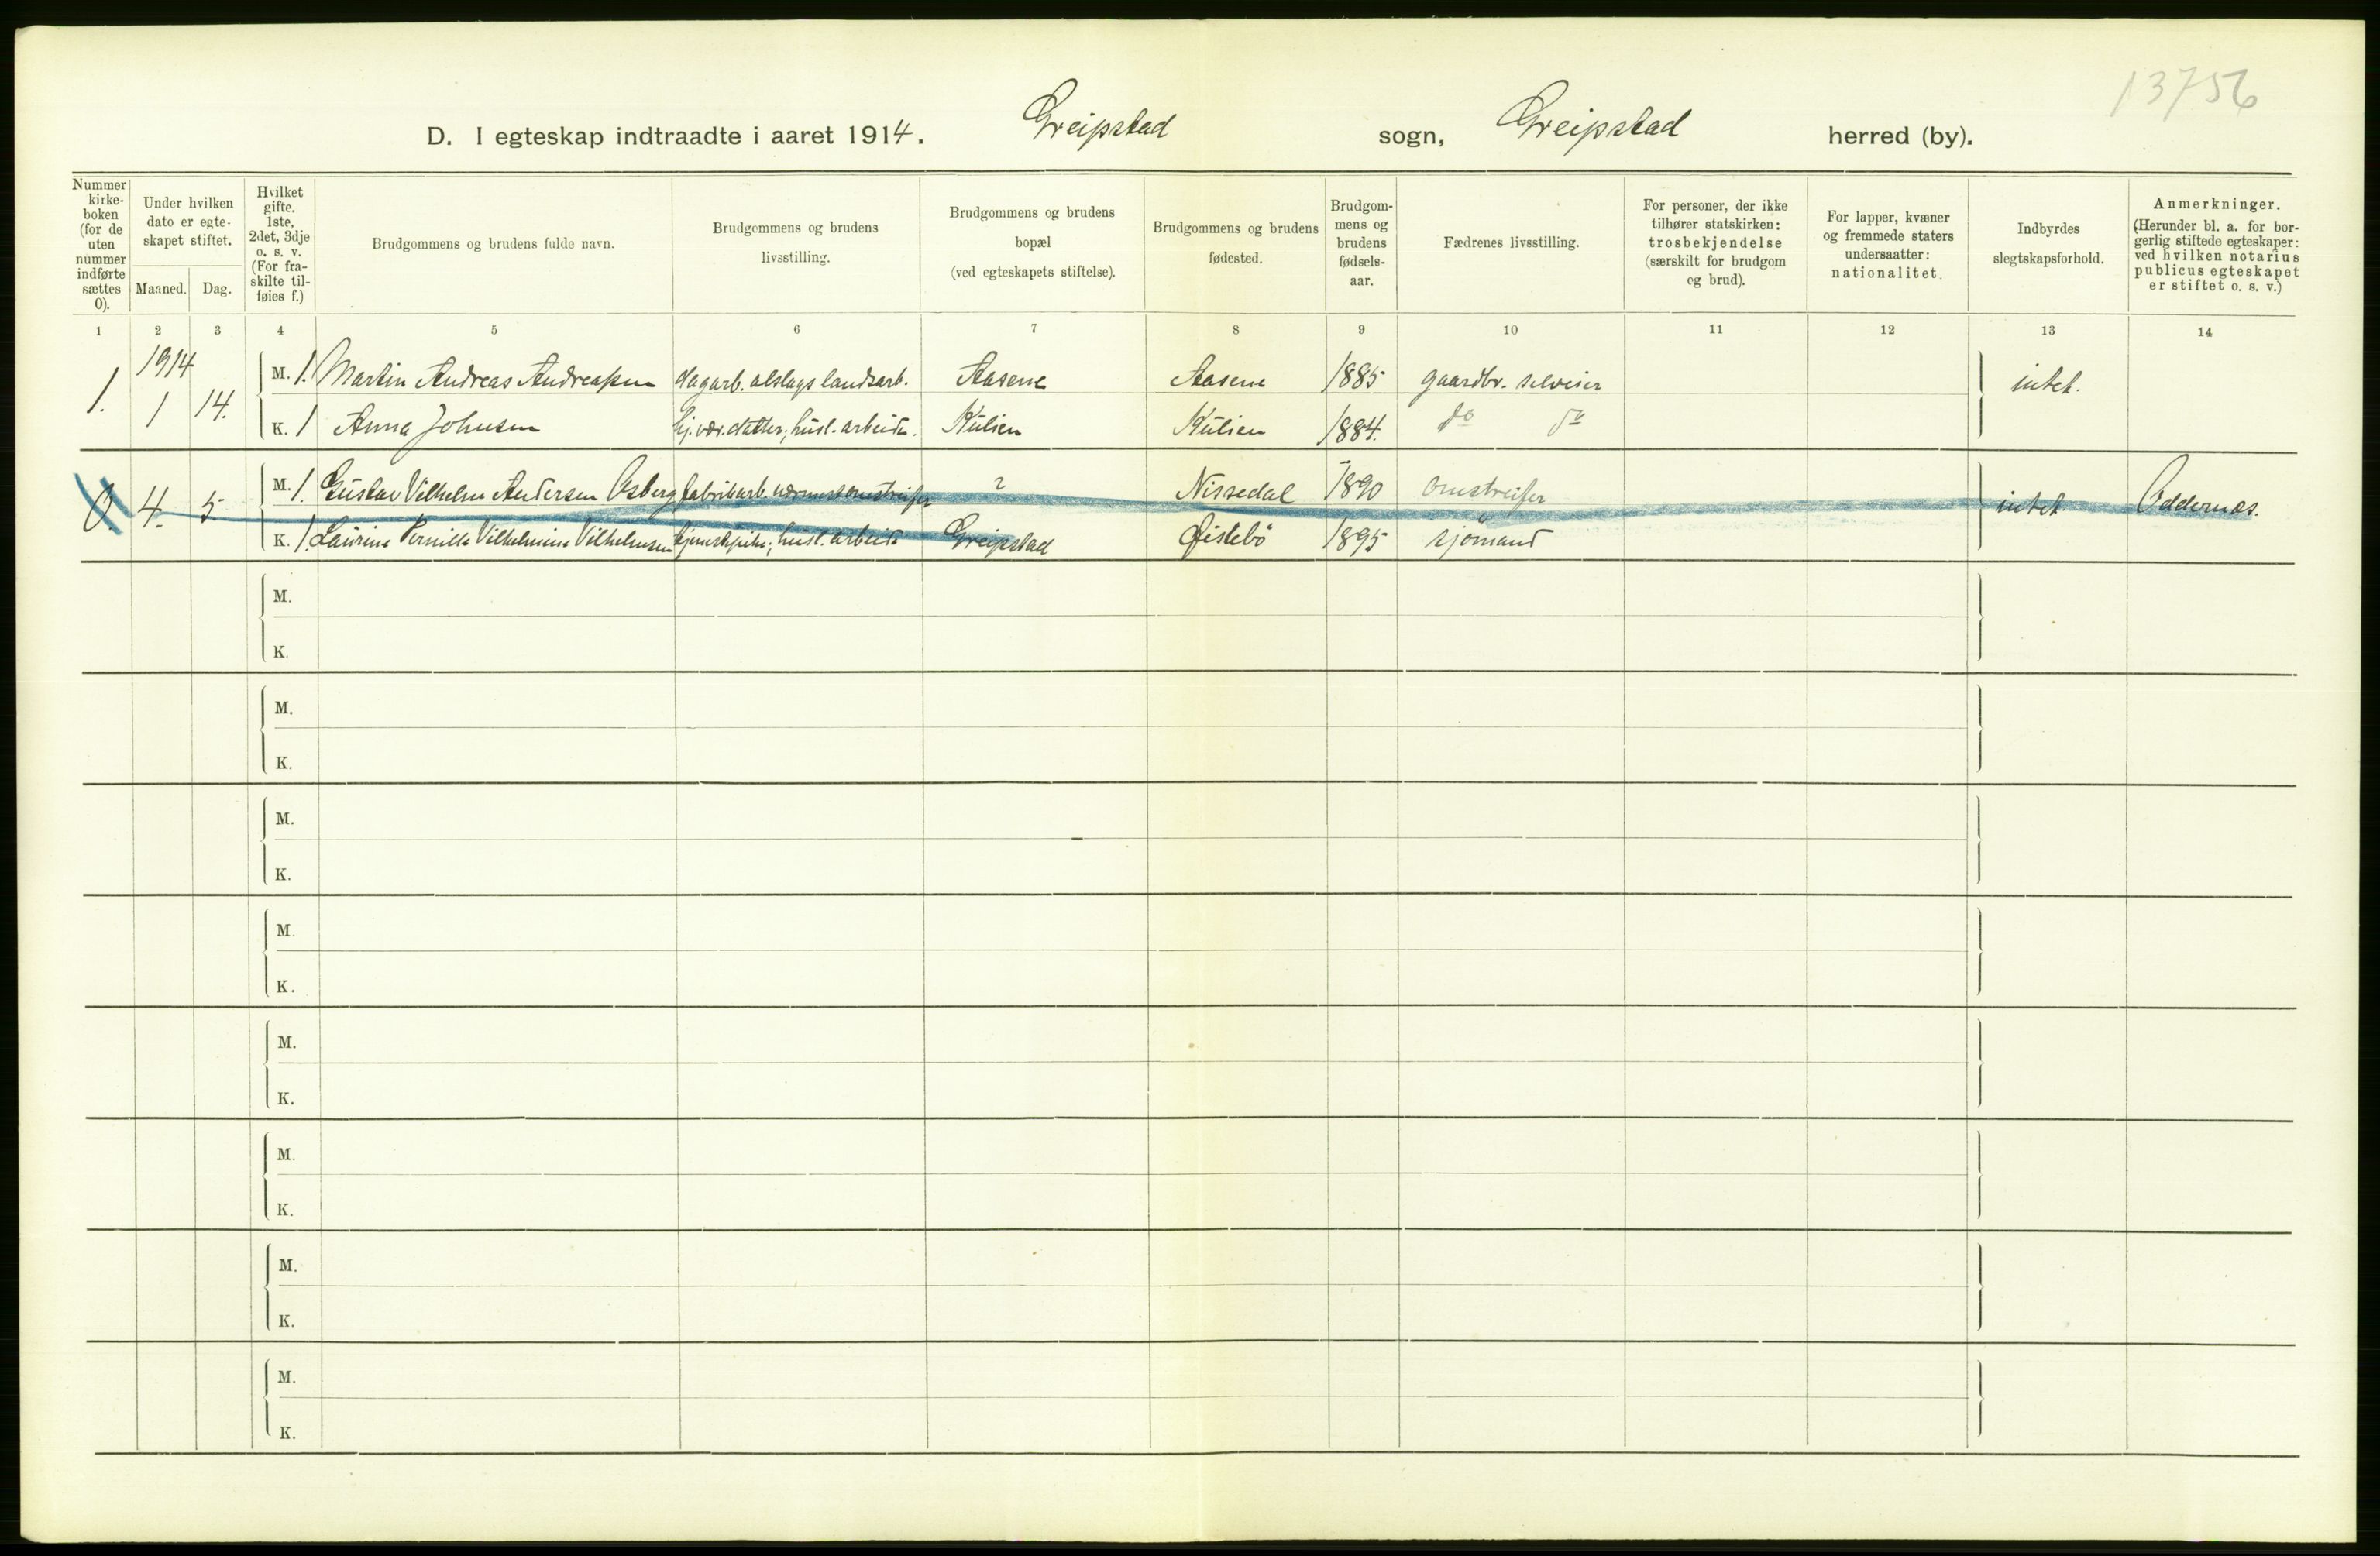 13756
D. I egteskap indtraadte i aaret 1914. Greipstad sogn, Greipstad herred (by).
Nummer kirke-boken (for de uten nummer indførte sættes 0).
Under hvilken dato er egte-skapet stiftet.
Maaned. Dag.
Hvilket gifte. 1ste, 2det, 3dje o. s. v. (For fra-skilte til-føies f.)
Brudgommens og brudens fulde navn.
Brudgommens og brudens livsstilling.
Brudgommens og brudens bopæl (ved egteskapets stiftelse).
Brudgommens og brudens fødested.
Brudgom-mens og brudens fødsels-aar.
Fædrenes livsstilling.
For personer, der ikke tilhører statskirken: trosbekjendelse (særskilt for brudgom og brud).
For lapper, kvæner og fremmede staters undersaatter: nationalitet.
Indbyrdes slegtskapsforhold.
Anmerkninger. (Herunder bl. a. for bor-gerlig stiftede egteskaper: ved hvilken notarius publicus egteskapet er stiftet o. s. v.)
1 2 3 4 5 6 7 8 9 10 11 12 13 14
1914
1. 1 14. M. 1. Martin Andreas Andreassen dagarb. alslags landsarb. Aasene Aasene 1885 gaardbr. selveier intet.
K. 1 Anna Johnsen hj. vær. datter; husl. arbeide. Kulien Kulien 1884. do do
0 4. 5. M. 1. Gustav Vilhelm Andersen Osberg fabrikarb. nærmest omstreifer ? Nissedal 1890 omstreifer intet Oddernæs.
K. 1. Laurine Pernille Vilhelmine Vilhelmsen husl. arbeide Greipstad Øislebö 1895 sjömand
M.
K.
M.
K.
M.
K.
M.
K.
M.
K.
M.
K.
M.
K.
M.
K.